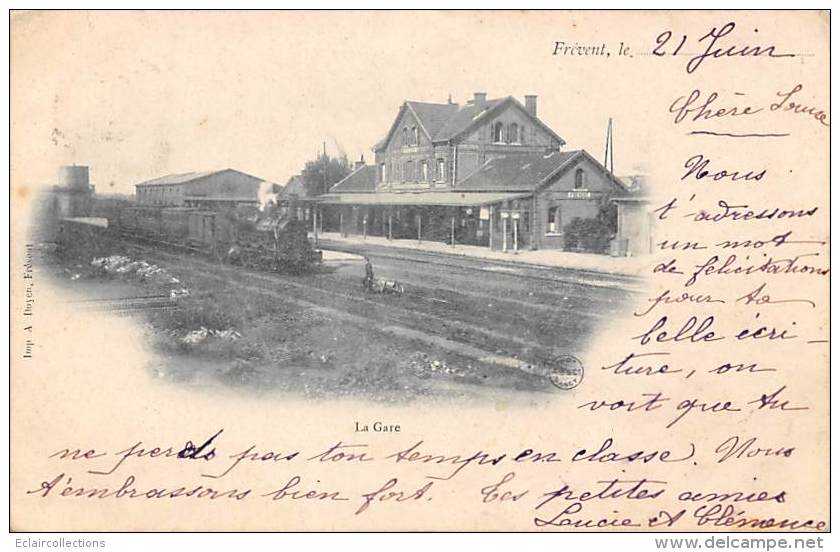 Frévent, le 21 Juin
Chère Louise
Nous
t'adressons
un mot
de félicitations
pour ta
belle écri-
ture, on
voit que tu
ne perds pas ton temps en classe. Nous
t'embrassons bien fort. Tes petites amies
Lucie et Clémence
La Gare
Imp A Doyen, Frévent
FREVENT
Eclaircollections
www.delcampe.net